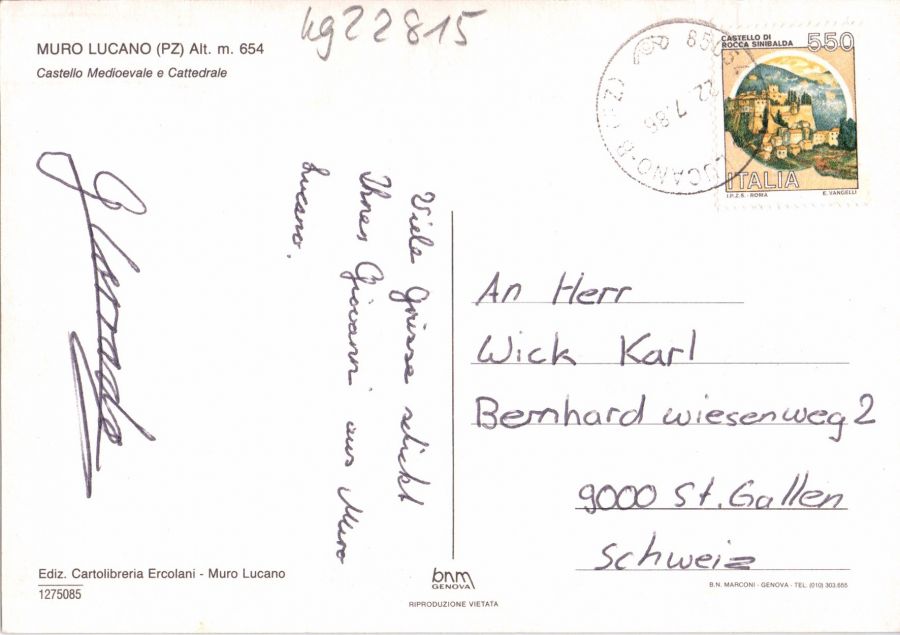 kg22815
MURO LUCANO (PZ) Alt. m. 654
Castello Medioevale e Cattedrale
CASTELLO DI
ROCCA SINIBALDA
550
ITALIA
I.P.Z.S. - ROMA E. VANGELLI
22.7.86
LUCANO
Viele Grüsse schickt
Ihnen Giovanni aus Muro
Lucano.
An Herr
Wick Karl
Bernhard wiesenweg 2
9000 St. Gallen
Schweiz
Ediz. Cartolibreria Ercolani - Muro Lucano
1275085
bnm
GENOVA
RIPRODUZIONE VIETATA
B.N. MARCONI - GENOVA - TEL. (010) 303.655